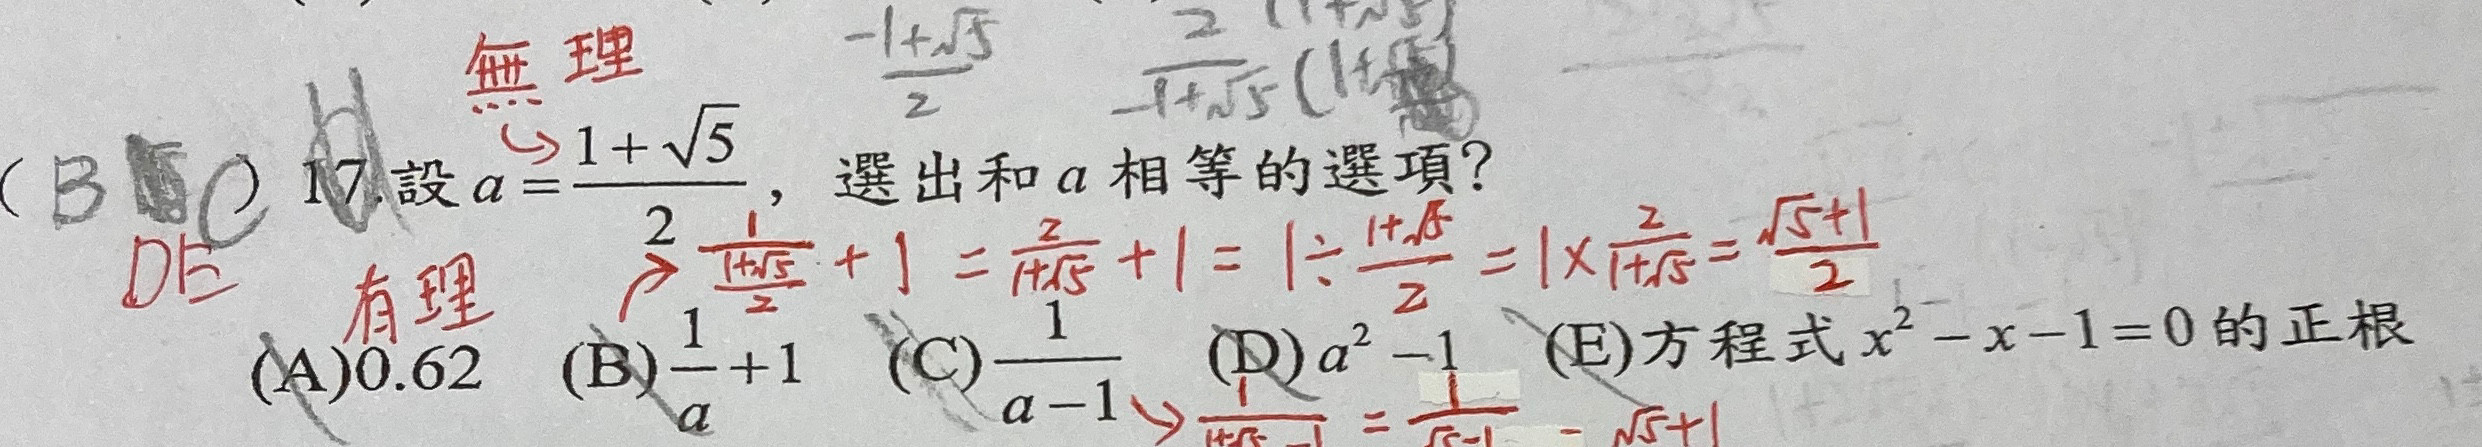 無理
-1+√5 / 2   2 (1+√5) / -1+√5 (1+√5)
(BC) 17.設 a = (1+√5)/2 ，選出和 a 相等的選項？
DE
有理 → 1/((1+√5)/2) + 1 = 2/(1+√5) + 1 = 1 ÷ (1+√5)/2 = 1 × 2/(1+√5) = (√5+1)/2
(A)0.62 (B) 1/a +1 (C) 1/(a-1) (D) a² -1 (E)方程式 x² - x - 1 = 0 的正根